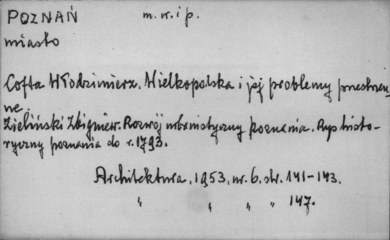 POZNAŃ m. w. i p.
miasto
Cofta Włodzimierz. Wielkopolska i jej problemy przestrzen-
ne.
Zieliński Zbigniew. Rozwój urbanistyczny Poznania. Rys histo-
ryczny Poznania do r. 1793.
Architektura, 1953, nr. 6. str. 141-143.
" " " " 147.